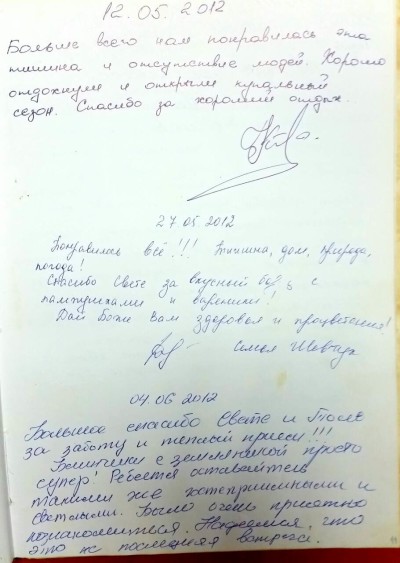 12.05.2012
Больше всего нам понравилась эта
тишина и отсутствие людей. Хорошо
отдохнули и открыли купальный
сезон. Спасибо за хороший отдых.
27.05.2012
Понравилось всё!!! Тишина, дом, природа,
погода!
Спасибо Свете за вкусный борщ с
пампушками и вареники!
Дай Боже Вам здоровья и процветания!
Семья
04.06.2012
Большое спасибо Свете и Толе
за заботу и теплый прием!!!
Блинчики с земляникой просто
супер! Ребята оставайтесь
такими же гостеприимными и
светлыми. Было очень приятно
познакомиться. Надеемся, что
это не последняя встреча.